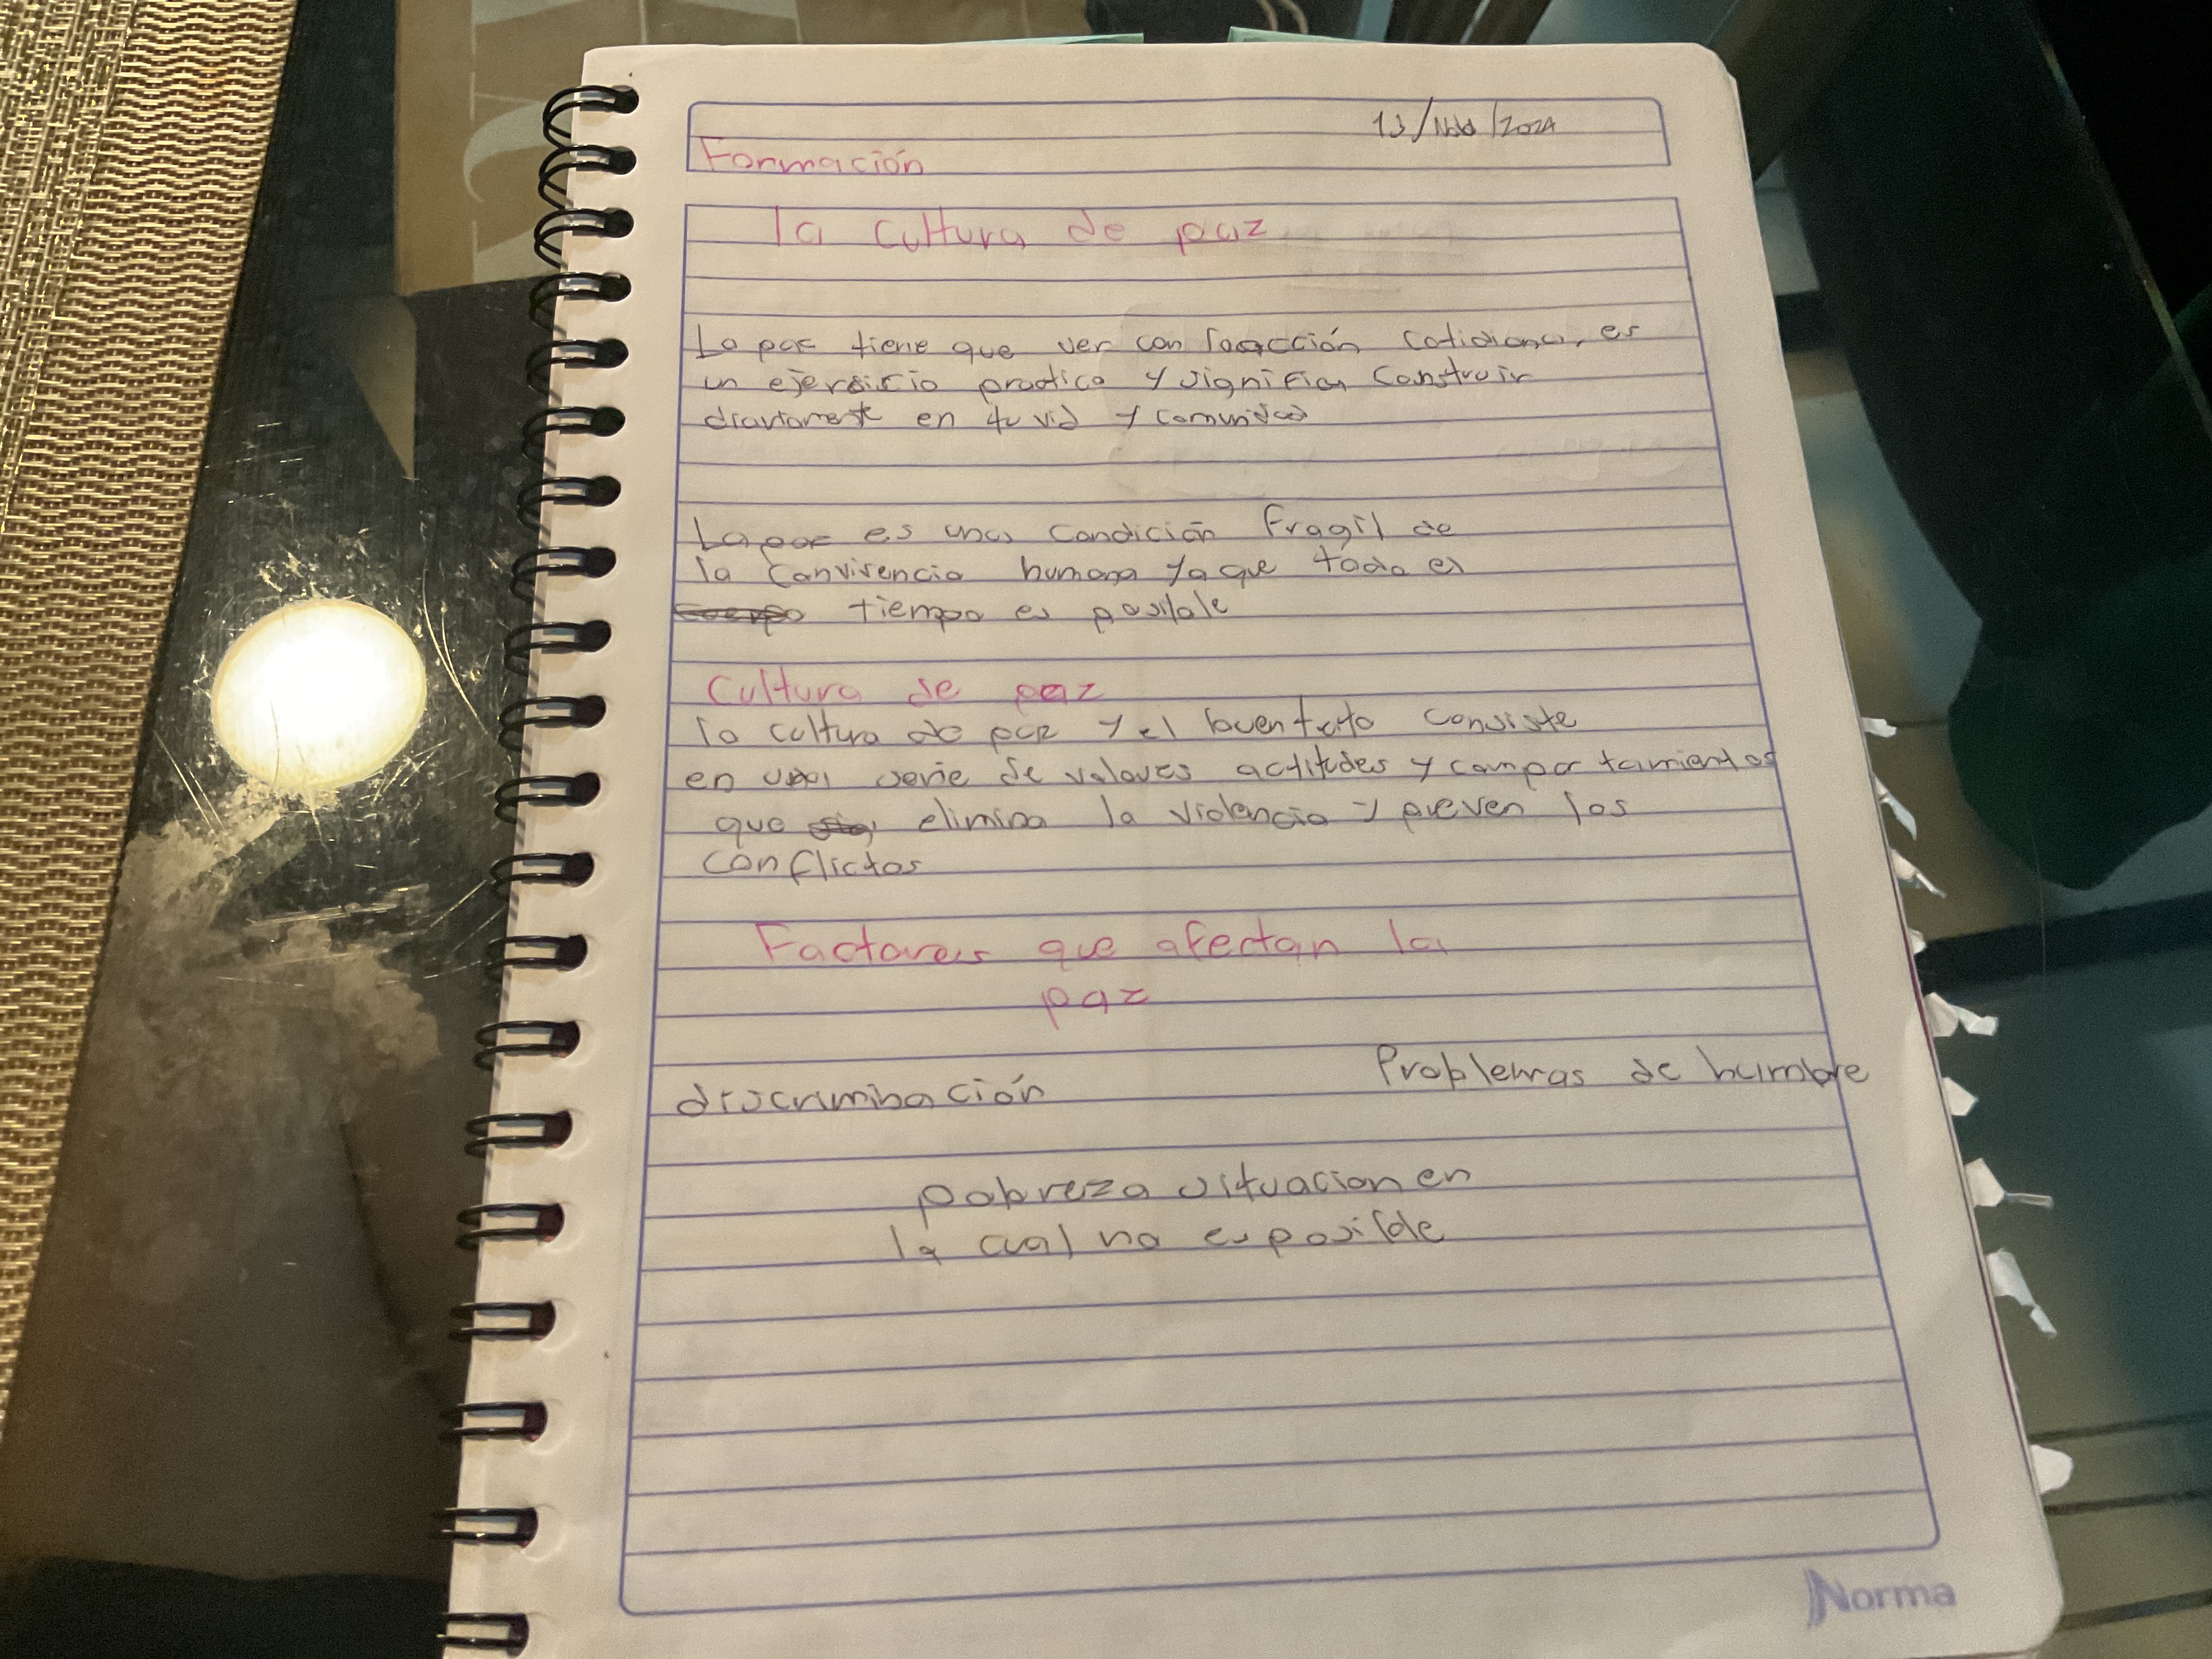 13/Nov/2024
Formación
la cultura de paz
La paz tiene que ver con la acción cotidiana, es
un ejersicio practico y significa construir
diariamente en tu vid y comunidad
La paz es una condición fragil de
la convivencia humana ya que todo el
tiempo es posible
Cultura de paz
la cultura de paz y el buen trato consiste
en una serie de valores actitudes y comportamientos
que elimina la violencia y preven los
conflictos
Factores que afectan la
paz
Problemas de hambre
discriminación
pobreza situacion en
la cual no es posible
Norma